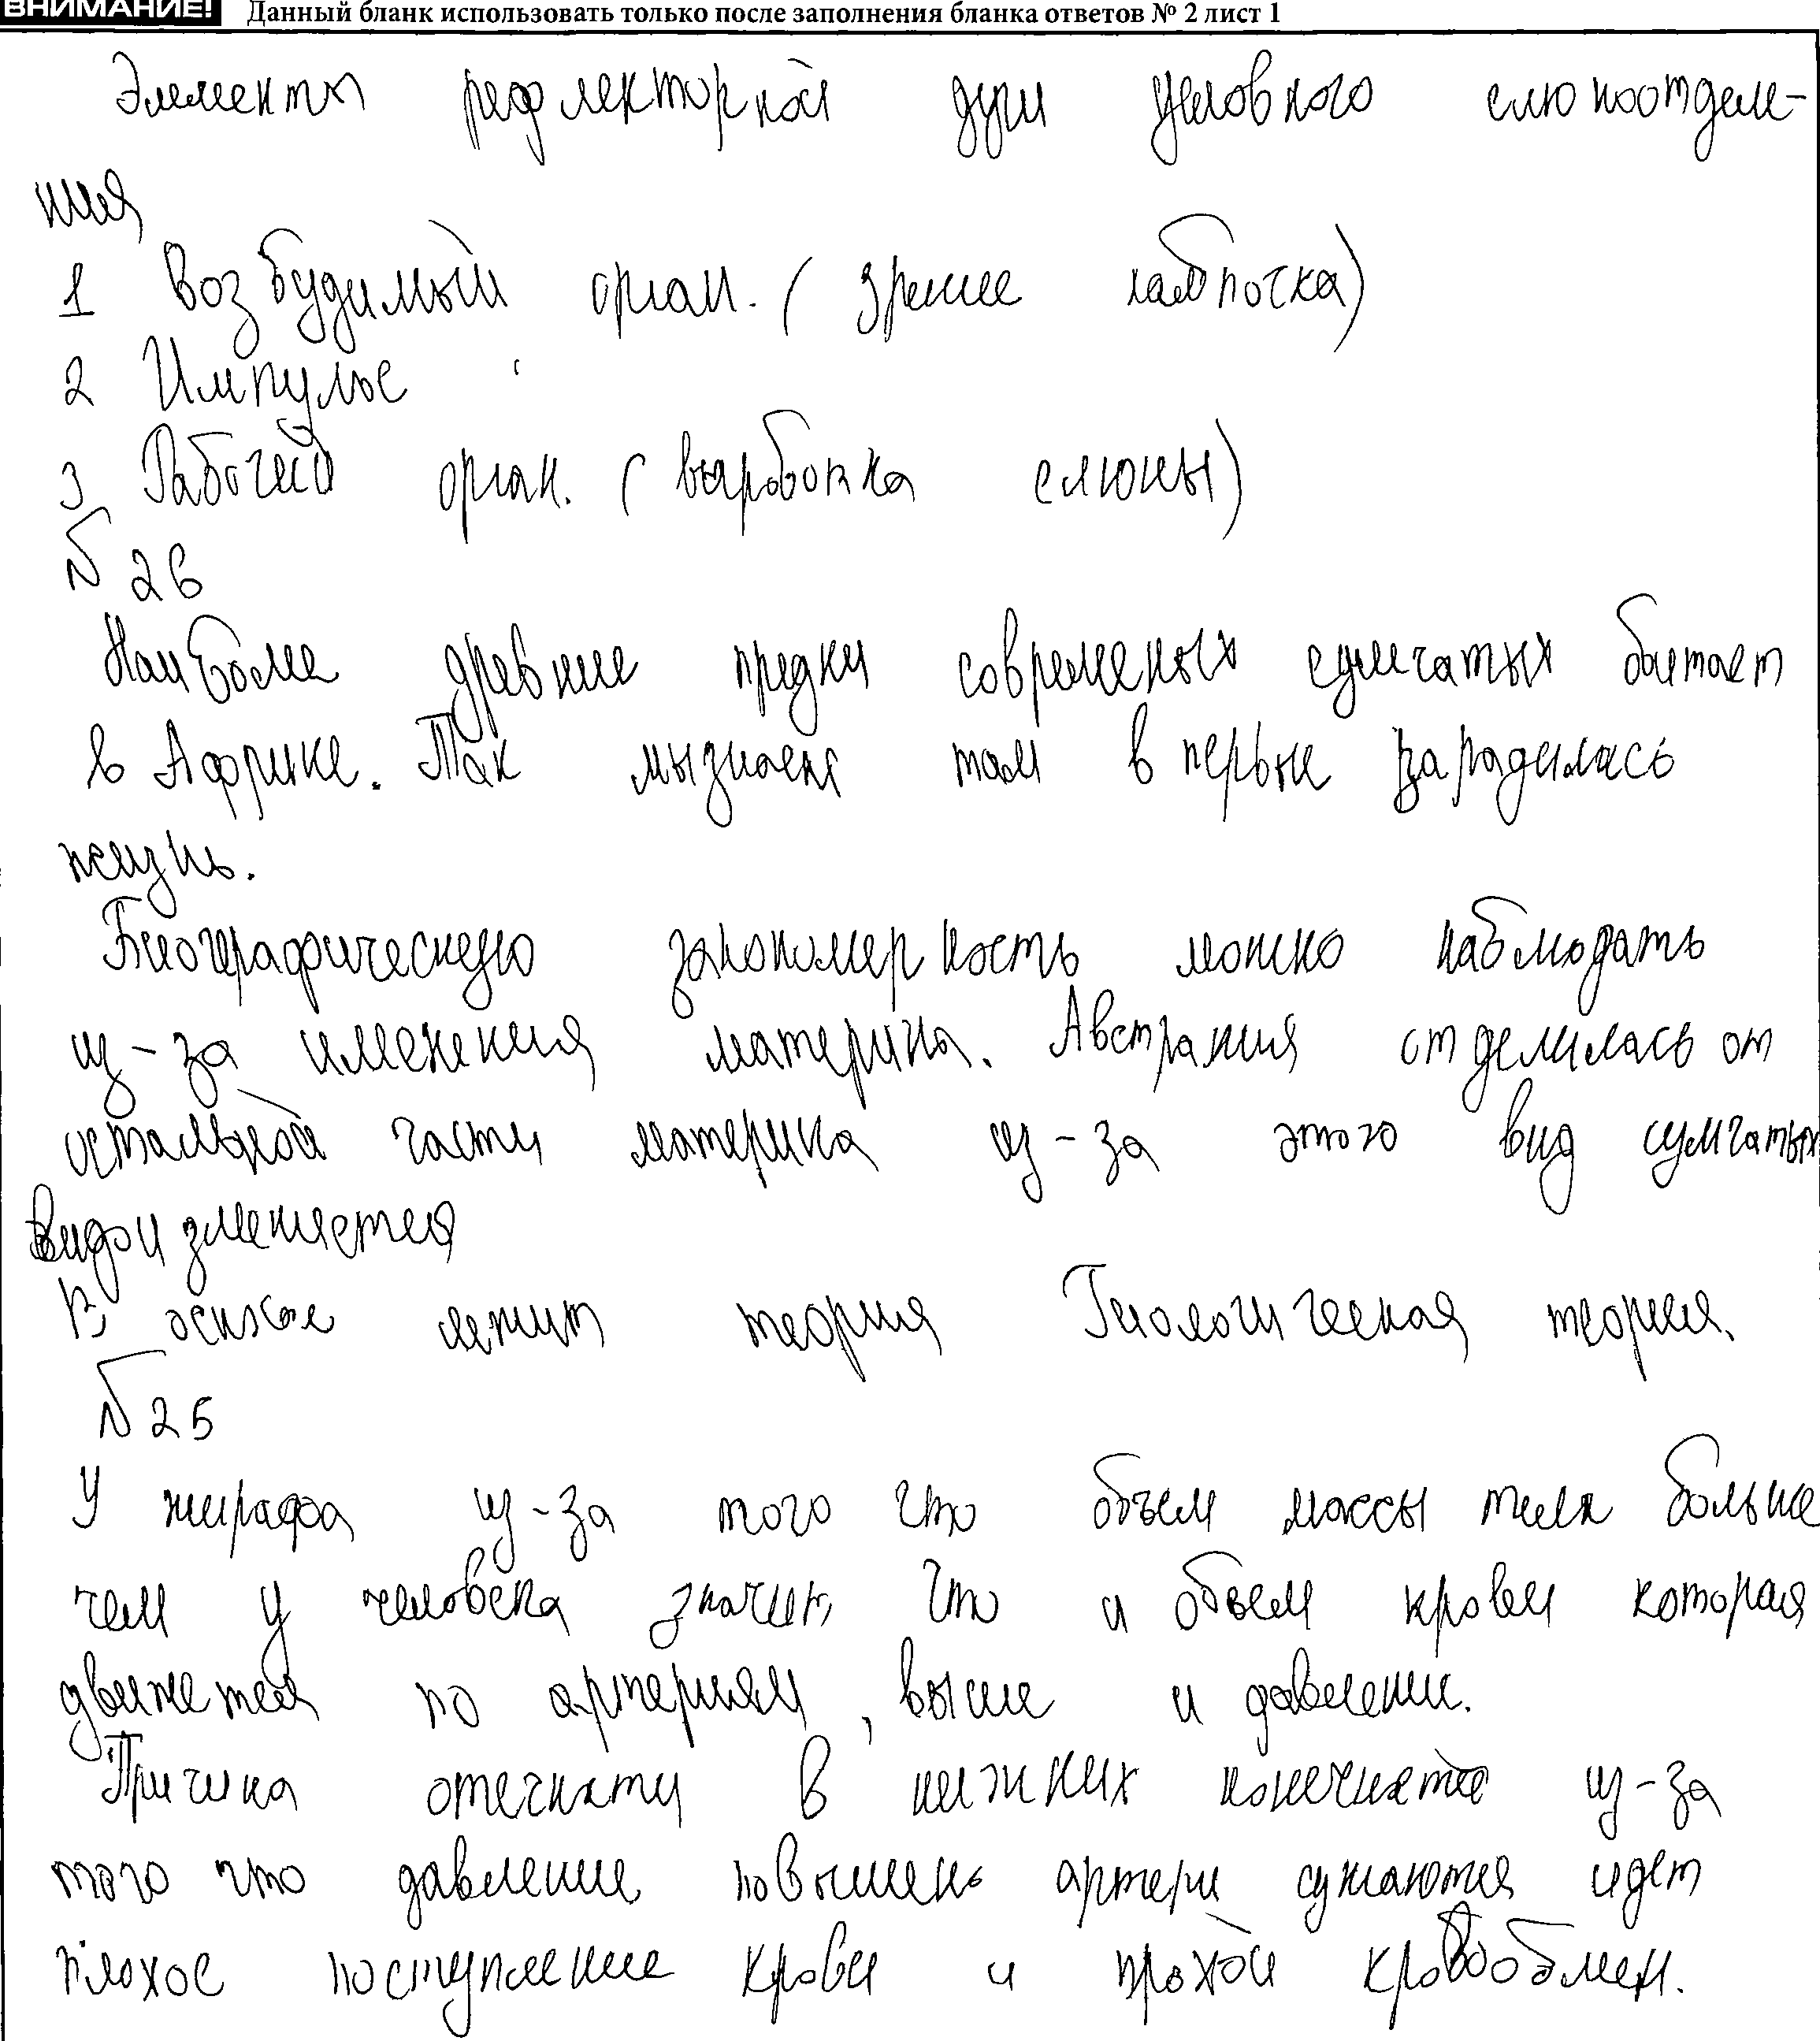 ВНИМАНИЕ! Данный бланк использовать только после заполнения бланка ответов № 2 лист 1
Элементы рефлекторной дуги условного слюноотделе-
ния
1 Возбудимый орган. (зрение лампочка)
2 Импульс
3 Рабочий орган. (выработка слюны)
№ 26
Наиболее древние предки современых сумчатых битает
в Африке. Так мызнаем там в первые зарадилась
жизнь.
Биографическую закономерность можно наблюдать
из-за именения материка. Австралия отделилась от
остальной части материка из-за этого вид сумчатых
видоизменяется
В оснкое лежит теория Гиологическая теория.
№ 25
У жирафа из-за того что объем массы тела больше
чем у человека значит что и объем крови которая
движется по артериям, выше и давлении.
Причина отечкти в нижних конечнкте из-за
того что давление повышень артери сужаются идет
плохое поступление крови и прохой кровообмен.